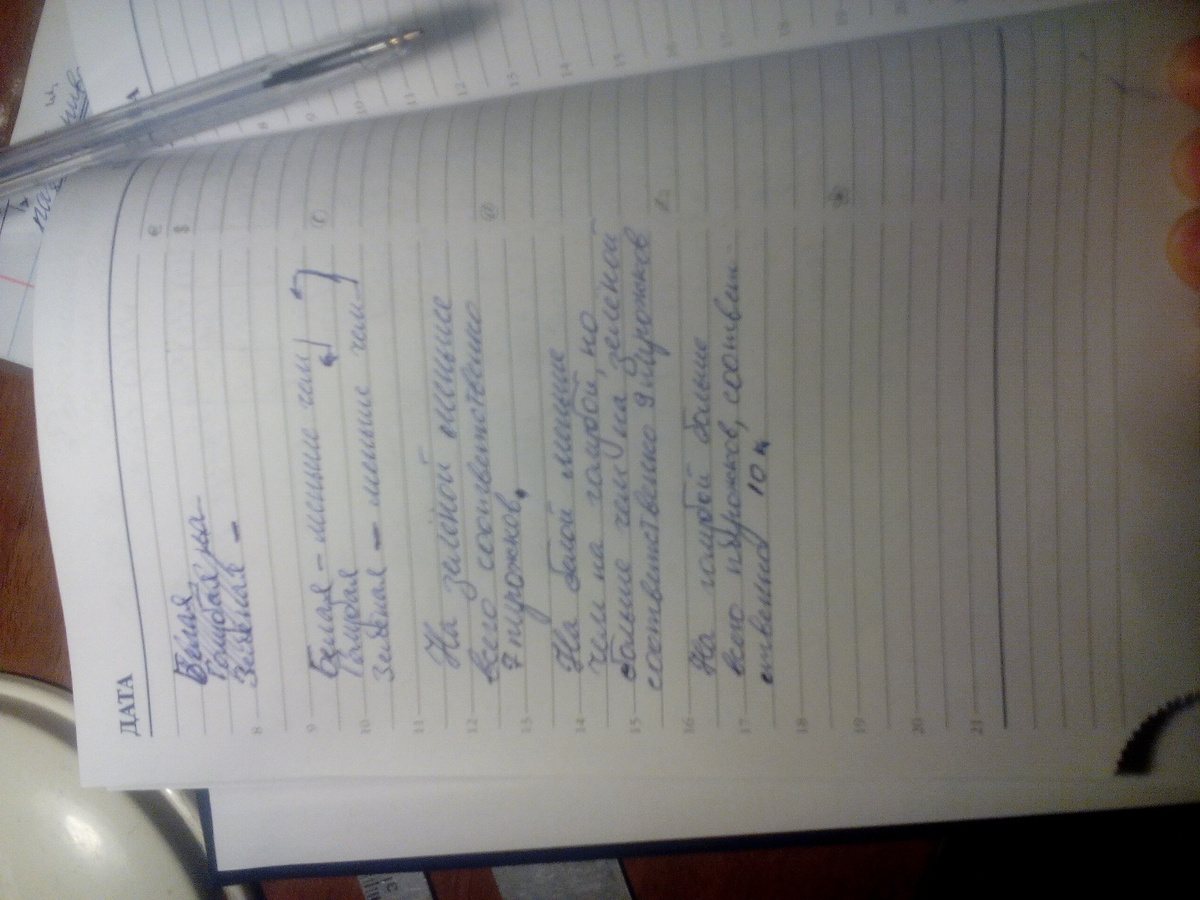 ДАТА
€
$
Белая
Голубая
Зелёная -
8
9
Белая - меньше чем
Голубая
10
Зелёная - меньше чем
11
На зелёной меньше
12
всего соответственно
7 пирожков.
13
На белой меньше
14
чем на голубой, но
15
больше чем на зелёной
соответственно 9 пирожков
16
На голубой больше
17
всего пирожков, соответ-
ственно 10
18
19
20
21
8
9
10
11
12
13
14
15
16
17
18